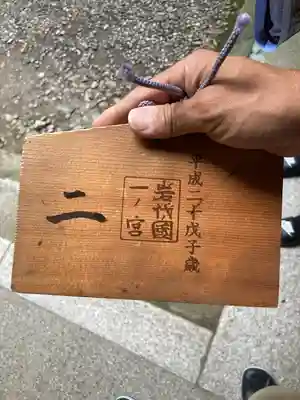 平成二十戊子歳
岩代國
一ノ宮
二